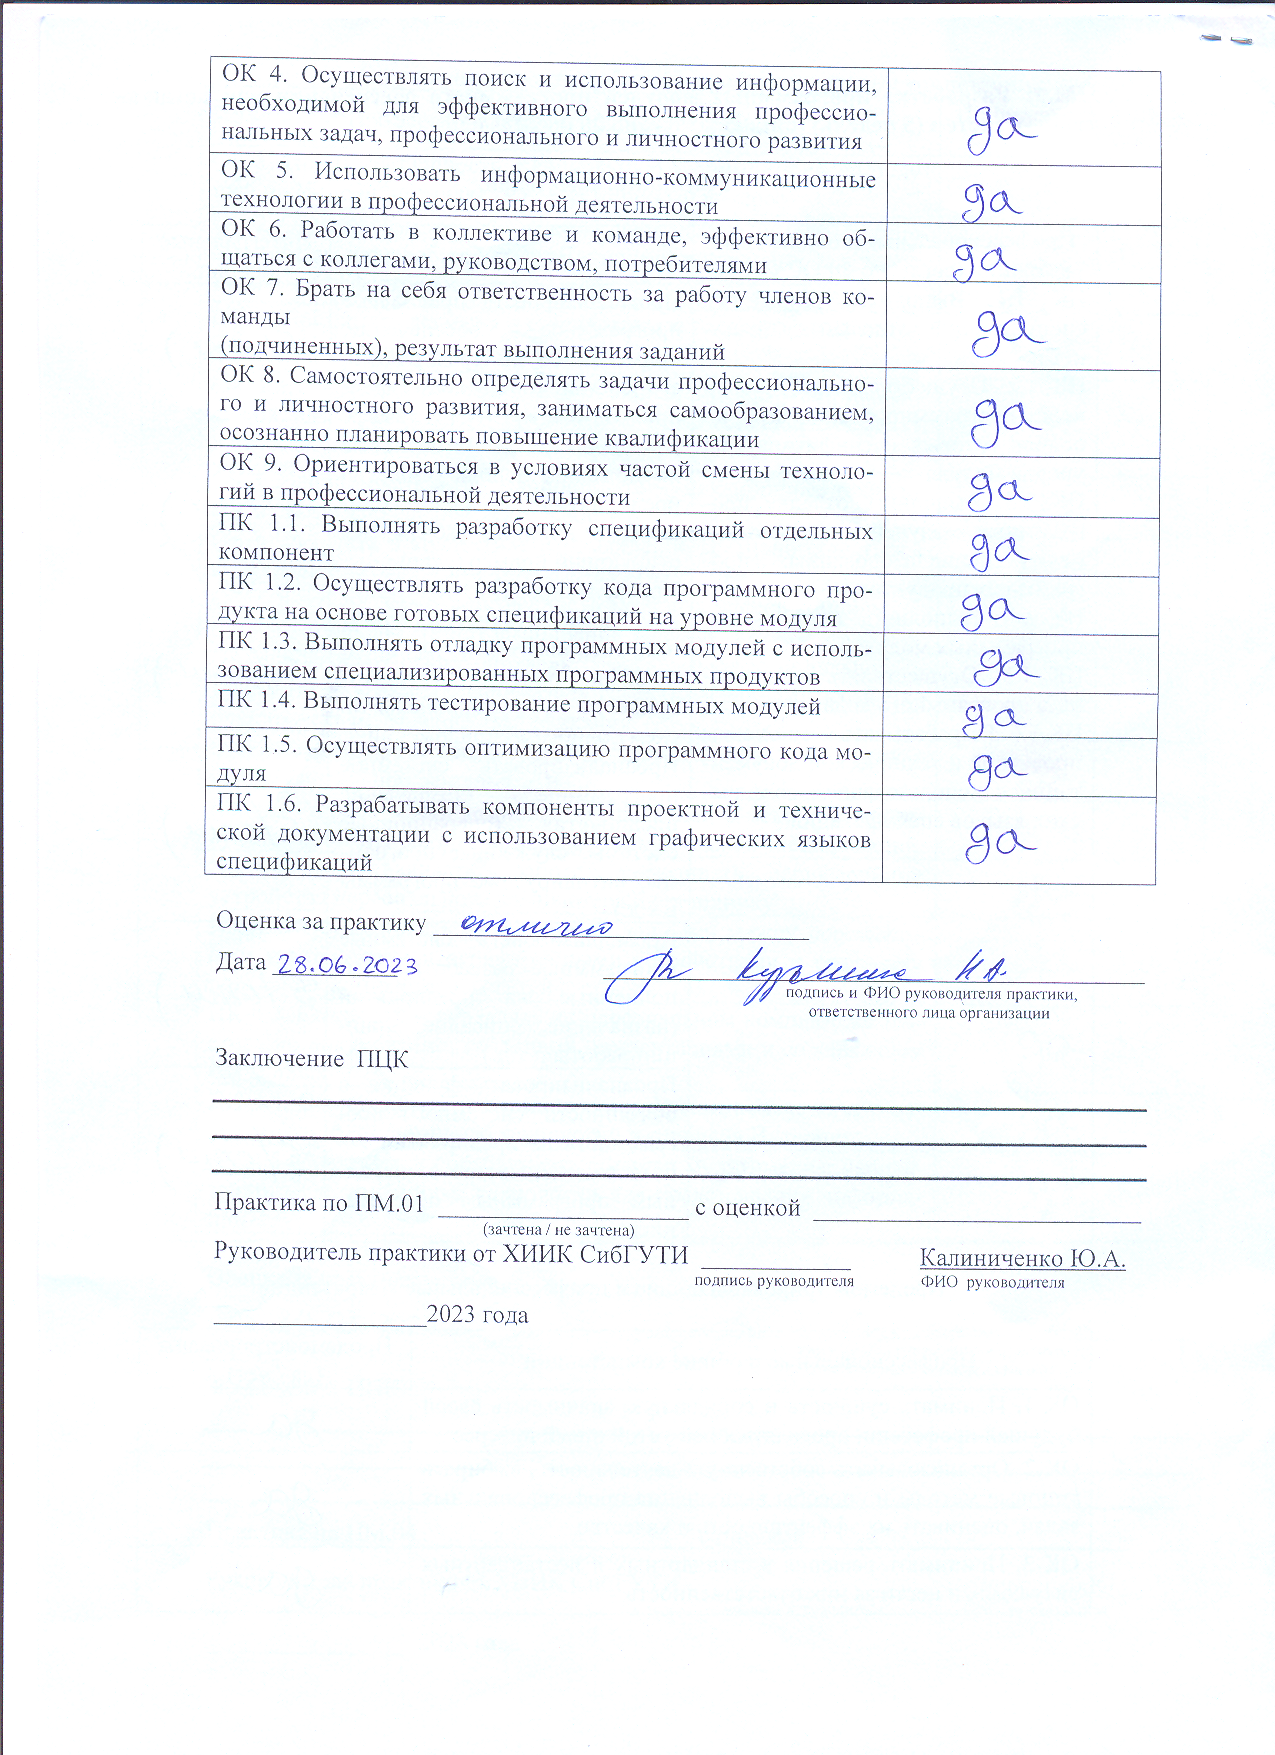 ОК 4. Осуществлять поиск и использование информации,
необходимой для эффективного выполнения профессио-
нальных задач, профессионального и личностного развития
да
ОК 5. Использовать информационно-коммуникационные
технологии в профессиональной деятельности
да
ОК 6. Работать в коллективе и команде, эффективно об-
щаться с коллегами, руководством, потребителями
да
ОК 7. Брать на себя ответственность за работу членов ко-
манды
(подчиненных), результат выполнения заданий
да
ОК 8. Самостоятельно определять задачи профессионально-
го и личностного развития, заниматься самообразованием,
осознанно планировать повышение квалификации
да
ОК 9. Ориентироваться в условиях частой смены техноло-
гий в профессиональной деятельности
да
ПК 1.1. Выполнять разработку спецификаций отдельных
компонент
да
ПК 1.2. Осуществлять разработку кода программного про-
дукта на основе готовых спецификаций на уровне модуля
да
ПК 1.3. Выполнять отладку программных модулей с исполь-
зованием специализированных программных продуктов
да
ПК 1.4. Выполнять тестирование программных модулей
да
ПК 1.5. Осуществлять оптимизацию программного кода мо-
дуля
да
ПК 1.6. Разрабатывать компоненты проектной и техниче-
ской документации с использованием графических языков
спецификаций
да
Оценка за практику отлично
Дата 28.06.2023 Н.А.
подпись и ФИО руководителя практики,
ответственного лица организации
Заключение ПЦК
Практика по ПМ.01 с оценкой
(зачтена / не зачтена)
Руководитель практики от ХИИК СибГУТИ Калиниченко Ю.А.
подпись руководителя ФИО руководителя
2023 года